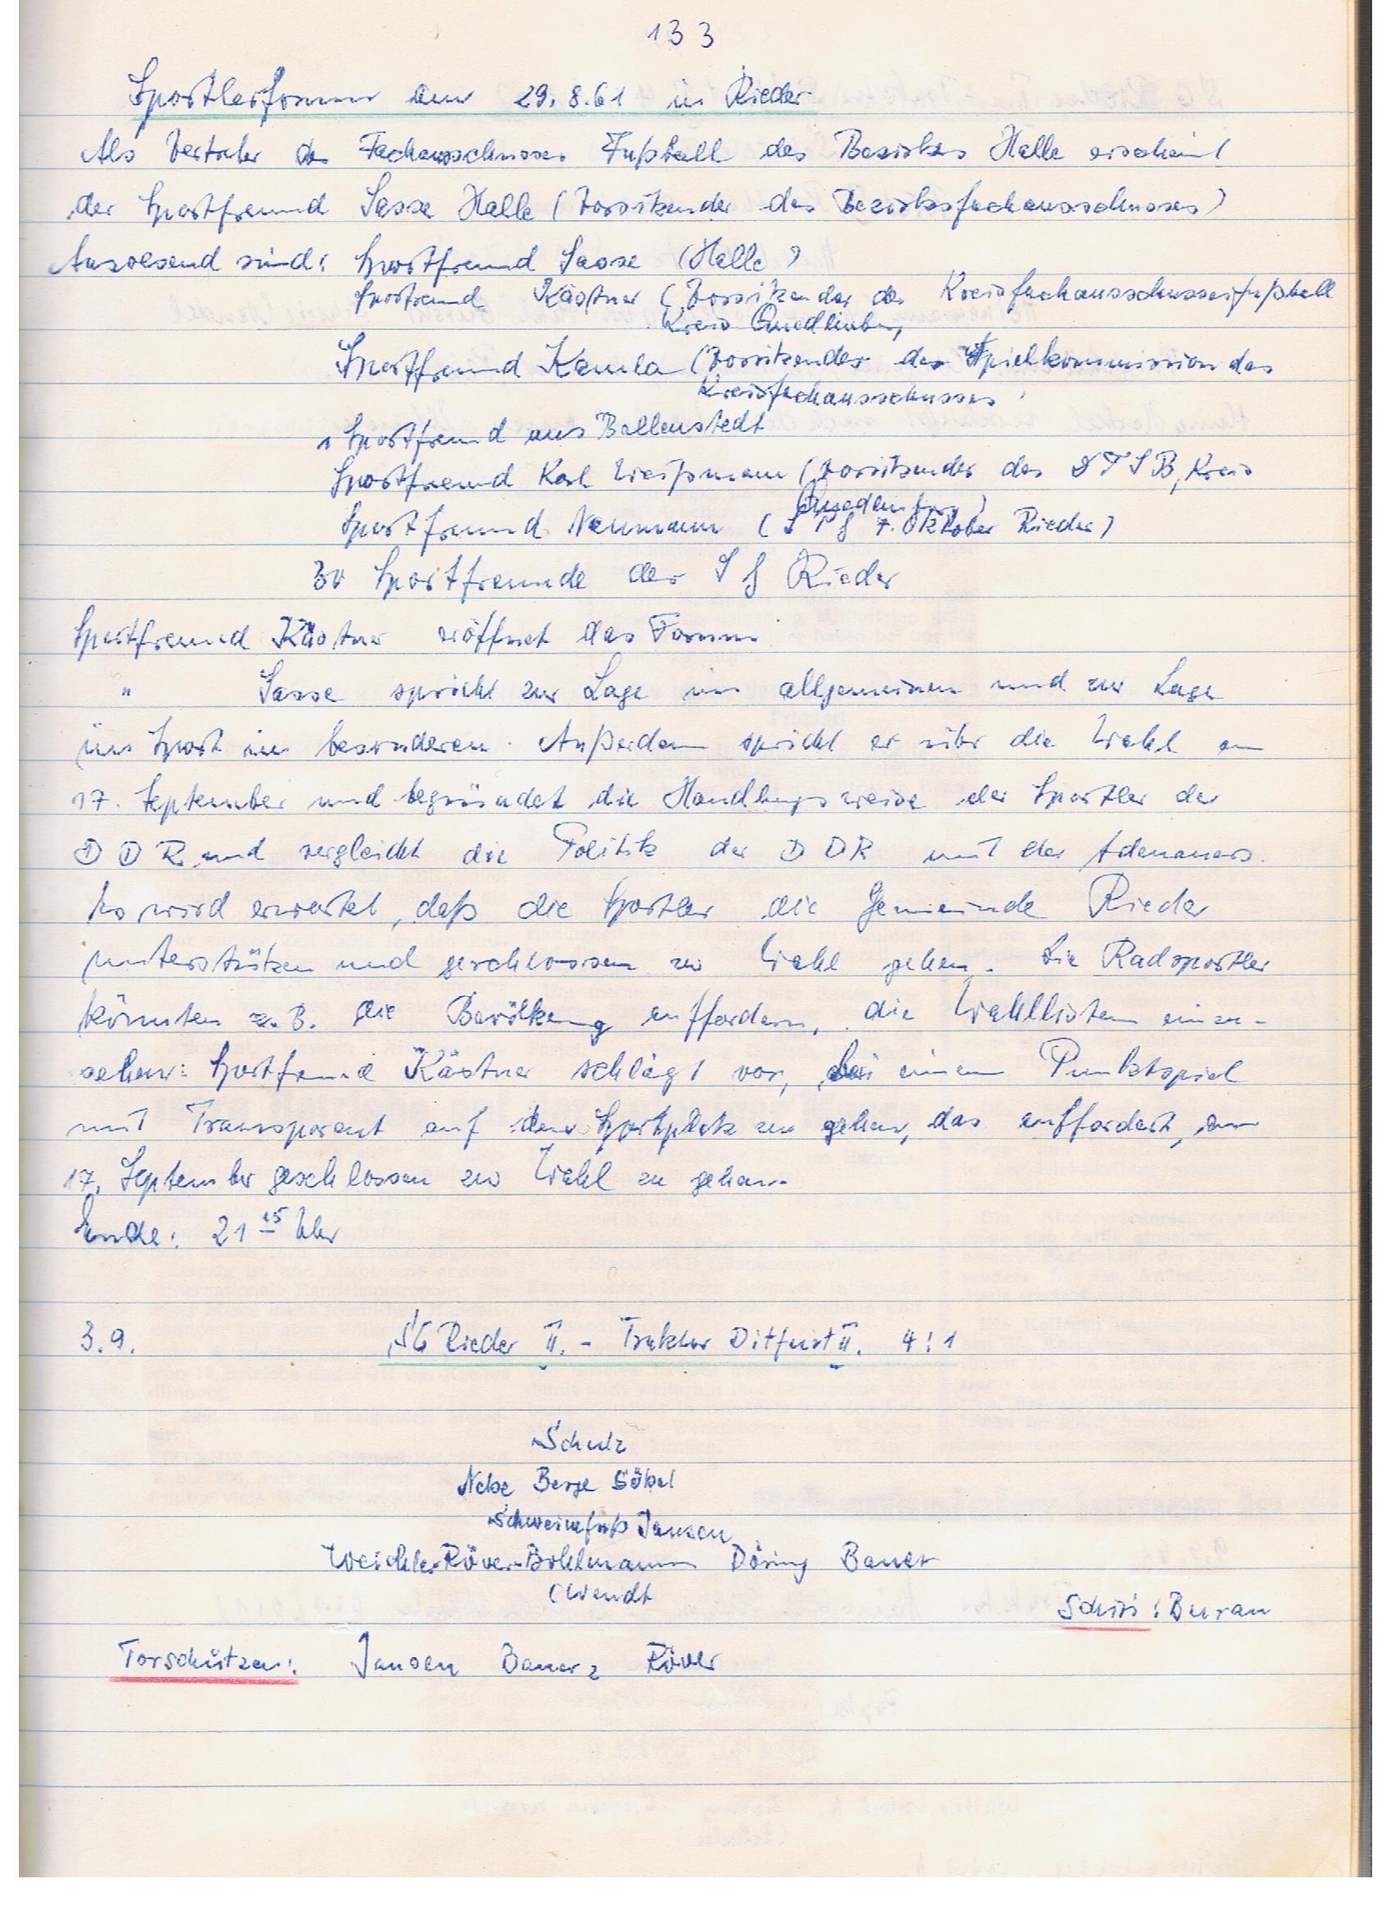 133
Sportlerforum am 29.8.61 in Rieder
Als Vertreter des Fachausschusses Fußball des Bezirkes Halle erscheint
der Sportfreund Sasse Halle (Vorsitzender des Bezirksfachausschusses)
Anwesend sind: Sportfreund Sasse (Halle)
Sportfreund Kästner (Vorsitzender des Kreisfachausschusses Fußball
Kreis Quedlinburg
Sportfreund Kamla (Vorsitzender der Spielkommission des
Kreisfachausschusses
1 Sportfreund aus Ballenstedt
Sportfreund Karl Weißmann (Vorsitzender des DTSB, Kreis
Quedlinburg)
Sportfreund Neumann (LPG 7. Oktober Rieder)
30 Sportfreunde der SG Rieder
Sportfreund Kästner eröffnet das Forum
" Sasse spricht zur Lage im allgemeinen und zur Lage
im Sport im besonderen. Außerdem spricht er über die Wahl am
17. September und begründet die Handlungsweise der Sportler der
DDR und vergleicht die Politik der DDR mit der Adenauers.
Es wird erwartet, daß die Sportler die Gemeinde Rieder
unterstützen und geschlossen zur Wahl gehen. Die Radsportler
könnten z.B. die Bevölkerung auffordern, die Wahllisten einzu-
sehen. Sportfreund Kästner schlägt vor, bei einem Punktspiel
mit Transparent auf den Sportplatz zu gehen, das auffordert, am
17. September geschlossen zur Wahl zu gehen.
Ende: 21 15 Uhr
3.9. SG Rieder II. - Traktor Ditfurt II. 4:1
Schulz
Nebe Berge Göbel
Schweinefuß Jansen
Weichler Röver Bohlmann Döring Bauer
(Wendt
Schiri: Buran
Torschützen: Jansen Bauer 2 Röver